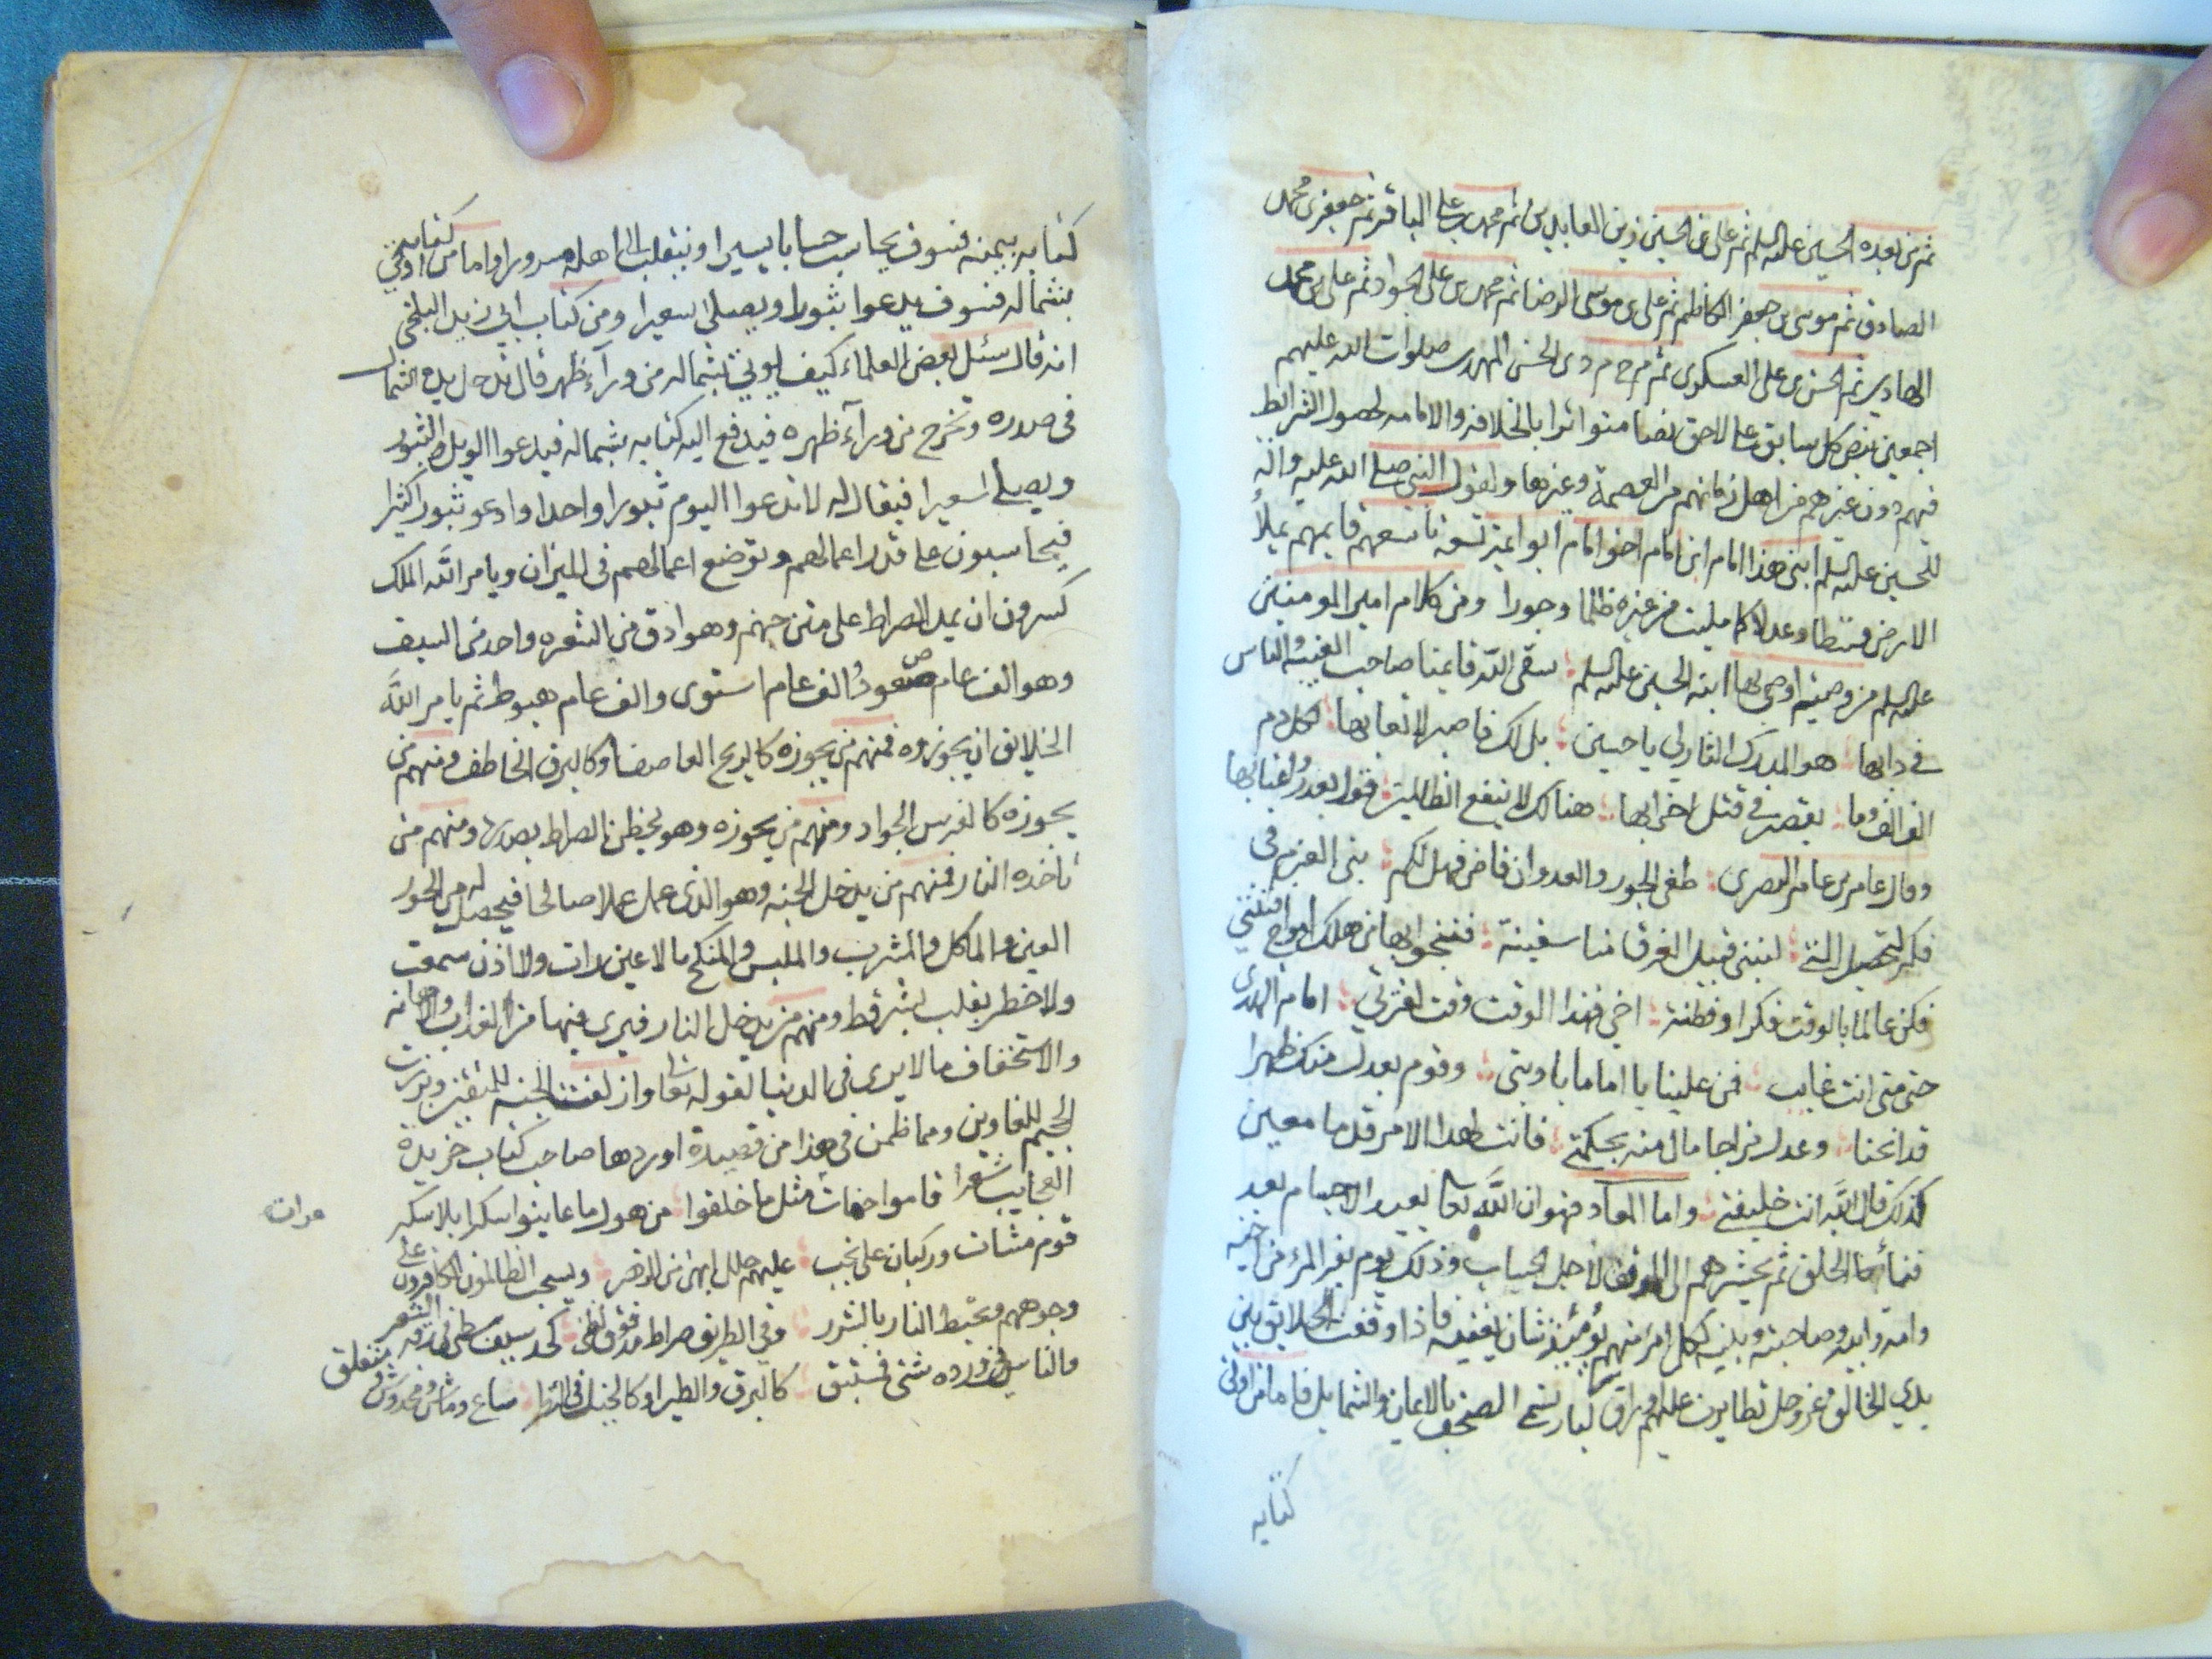 ثم من بعده الحسين عليه السلم ثم على بن الحسين زين العابدين ثم محمد بن على الباقر ثم جعفر بن محمد
الصادق ثم موسى بن جعفر الكاظم ثم على بن موسى الرضا ثم محمد بن على الجواد ثم على بن محمد
الهادى ثم الحسن بن على العسكرى ثم م ح م د بن الحسن المهدى صلوات الله عليهم
اجمعين بنص كل سابق على لاحق نصا متواترا بالخلافه والامامه لحصول الشرائط
فيهم دون غيرهم من اهل زمانهم من العصمة وغيرها ولقول النبى صلى الله عليه واله
للحسين عليه السلم ابنى هذا امام ابن امام اخو امام ابو ائمة تسعة تاسعهم قايمهم يملأ
الارض قسطا وعدلا كما مليت من غيره ظلما وجورا ومن كلام امير المومنين
عليه السلم من وصيته اوصى بها ابنه الحسين عليه السلم سقى الله قايمنا صاحب القيمة والناس
فى دابها هو المدرك الثار لى يا حسين بل لك فاصبر لاتعابها لكل دم
الف الف وما يقصر فى قتل احزابها هنالك لا ينفع الظالمين قول بعذر واعتابها
وقال عامر بن عامر البصرى طغى الجور والعدوان فاض فهل لكم بنى العزم فى
فكر لتحصيل لنبنى قبيل الغرق منا سفينة فننجو بها من هلك امواج فتنتى
فكن عالما بالوقت فكرا وفطنة اخى فهذا الوقت وقت لفترتى امام الهدى
حتى متى انت غايب فمن علينا يا اماما باوبتى وقوم بعدل منك ظهرا
قد انحنا وعدل مزاجا مال منه بحكمتى فانت لهذا الامر قدما معين
كذلك قال الله انت خليفتى واما المعاد فهو ان الله تعا يعيد الاجسام بعد
فنائها الخلق ثم يحشرهم الى الموقف لاجل الحساب وذلك يوم يفر المرء من اخيه
وامه وابيه وصاحبته وبنيه لكل امرء منهم يومئذ شان يغنيه فاذا وقفت الخلايق بين
يدى الخالق عز وجل تطايرت عليهم اوراق كبار تسمى الصحف بالايمان والشمايل فاما من اوتى
كتابه
كتابه بيمينه فسوف يحاسب حسابا يسيرا وينقلب الى اهله مسرورا واما من اوتى كتابه
بشماله فسوف يدعوا ثبورا ويصلى سعيرا ومن كتاب ابى زيد البلخى
انه قال سئل بعض العلماء كيف يوتى بشماله من ورآء ظهره قال تدخل يده الشمال
فى صدره وتخرج من ورآء ظهره فيدفع اليه كتابه بشماله فيدعوا الويل والثبور
ويصلى سعيرا فيقال له لا تدعوا اليوم ثبورا واحدا وادعو ثبورا كثيرا
فيحاسبون على قدر اعمالهم وتوضع اعمالهم فى الميزان ويامر الله الملك
ان يمد الصراط على متن جهنم وهو ادق من الشعره واحد من السيف
وهو الف عام صعود الف عام استوى والف عام هبوط ثم يامر الله
الخلايق ان يجوزوه فمنهم من يجوزه كالريح العاصف وكالبرق الخاطف ومنهم من
يجوزه كالفرس الجواد ومنهم من يجوزه وهو الصراط بصدره ومنهم من
تاخذه النار فمنهم من يدخل الجنه وهو الذى عمل عملا صالحا فيحصل له من الحور
العين والماكل والمشرب والملبس والمنكح ما لا عين رات ولا اذن سمعت
ولا خطر بقلب بشر قط ومنهم من يدخل النار فيرى فيها من العذاب والاهانه
والاستخفاف ما لا يرى فى الدنيا لقوله تعا وازلفت الجنه للمتقين وبرزت
الجحيم للغاوين ومما نظمت فى هذا من قصيدة اوردها صاحب كتاب خريدة
العجايب شعرا قاموا حفات مثل ما خلقوا من هول ما عاينوا سكرا بلا سكر
قوم مشات وركبان على نجب عليهم حلل ابهى من الزهر ويسحب الظالمون الكافرون على
وجوههم وتحيط النار بالشرر وفى الطريق صراط مد فوق لظى كحد سيف سطى فى دقه الشعر
والناس فى ورده شتى فمستبق كالبرق والطير او كالخيل فى النظر ساع وماش ومخدوش ومتعلق